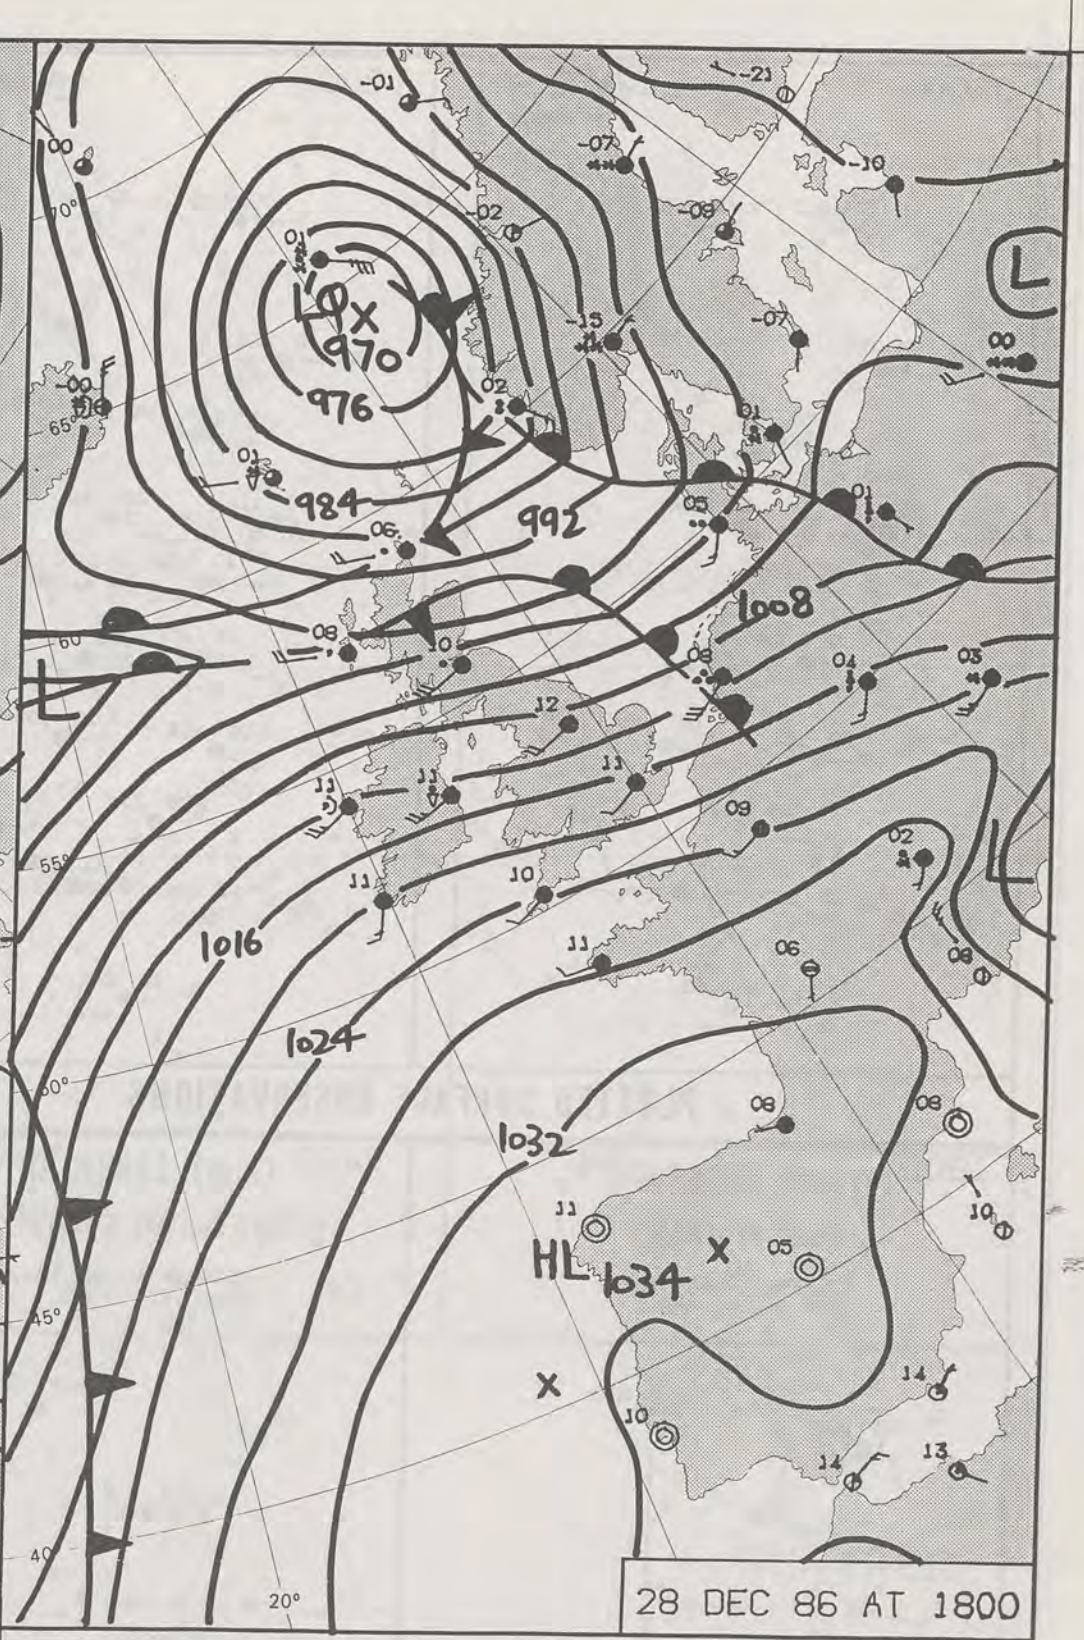 -01
-21
00
-07
-10
70°
-02
-09
01
L
LQ X
970
-15
-07
00
-00
976
02
65°
01
01
984
992
05
01
06
1008
08
10
60°
08
04
03
L
12
11
11
11
09
02
L
55°
11
10
1016
11
06
08
1024
50°
08
08
1032
11
10
HL
1034
X
05
45°
X
14
10
14
13
40°
20°
28 DEC 86 AT 1800